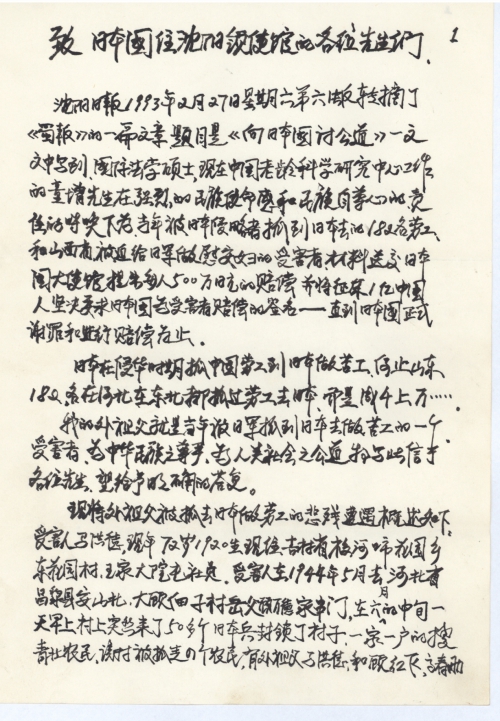 致 日本国住沈阳领使馆的各位先生们, 1
沈阳日报1993年2月27日星期六第六版转摘了
《蜀报》的一篇文章题目是《向日本国讨公道》一文
文中写到,国际法学硕士,现在中国老龄科学研究中心工作
的童增先生在强烈的民族使命感和民族自尊心的责
任的呼唤下为,当年被日军侵略者抓到日本去的182名劳工
和山西省被迫给日军做慰安妇的受害者,材料送交日本
国大使馆提出每人500万日元的赔偿并将征集1亿中国
人坚决要求日本国为受害者赔偿的签名——直到日本国正式
谢罪和进行赔偿为止.
日本在侵华时期抓中国劳工到日本做苦工,何止山东
182名在河北在东北都抓过劳工去日本 那是成千上万……
我的外祖父就是当年被日军抓到日本去做苦工的一个
受害者,为中华民族之尊严,为人类社会之公道 特写此信于
各位先生,望给予明确的答复。
现将外祖父被抓去日本做劳工的悲残遭遇概述如下:
受害人马洪儒,现年72岁1920生现住,吉林省
东花园村,王家大院屯社员.受害人在1944年5月去河北省
昌黎县安山北,大 佃子村岳父 家串门,在六月的中旬一
天早上村上突然来了50多个日本兵封锁了村子,一家一户的搜
青壮农民,该村被抓走 个农民,有外祖父马洪儒,和